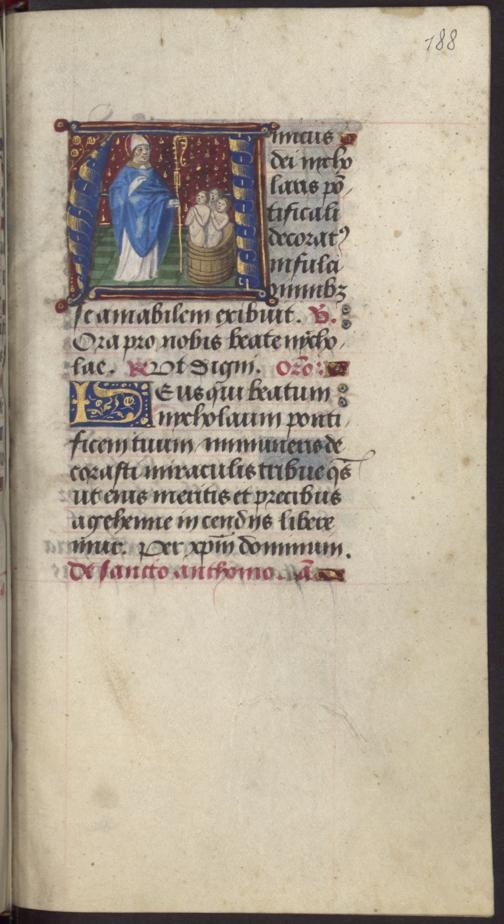 188
Amicus
dei nycho
laus põ
tificali
decorat⁹
infula
omnibꝫ
se amabilem exibuit. V̶.
Ora pro nobis beate nycho-
lae. R̶ Ut digni. Orõ.
Deus qui beatum
nycholaum ponti
ficem tuum innumeris de
corasti miraculis tribue qs̃
ut eius meritis et precibus
a gehenne incendiis libere
mur. Per xp̃m dominum.
De sancto anthonio. añ